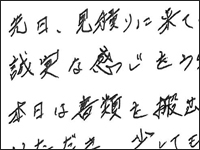 先日、見積りに来て
誠実な感じをう
本日は書類を搬出
いただき 少しても